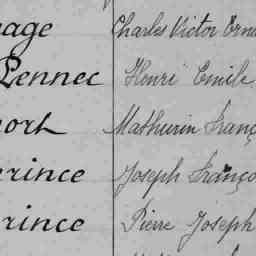 nage Charles Victor Erne
Pennec Henri Emile
port Mathurin Franç
rince Joseph Franço
rince Pierre Joseph